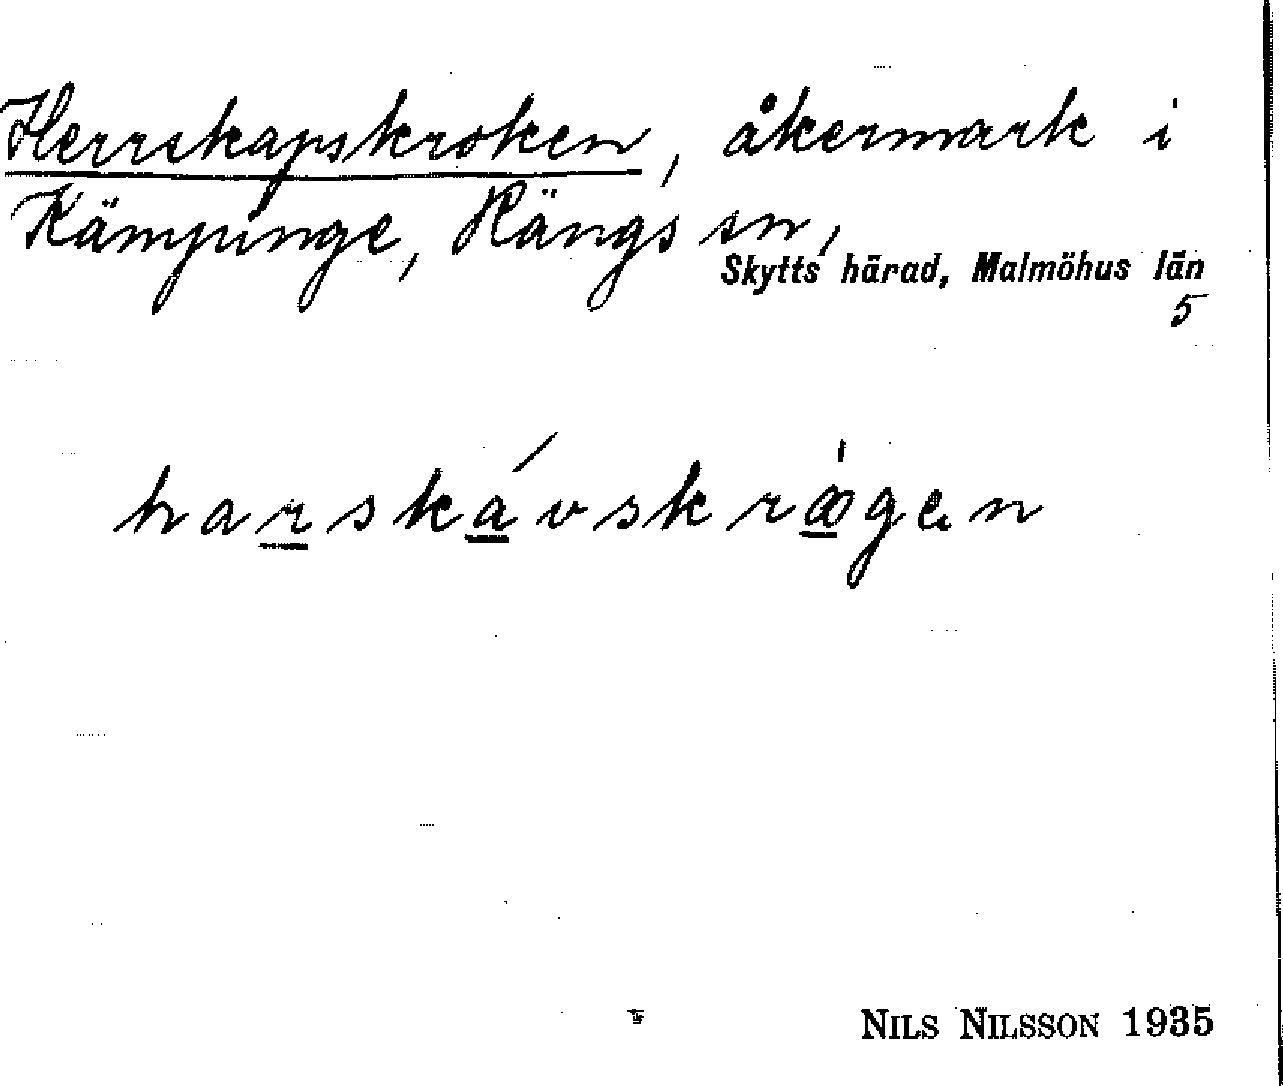 Herrskapskroken, åkermark i
Kämpinge, Rängs sn,
Skytts härad, Malmöhus län
5
harskávskrægen
NILS NILSSON 1935